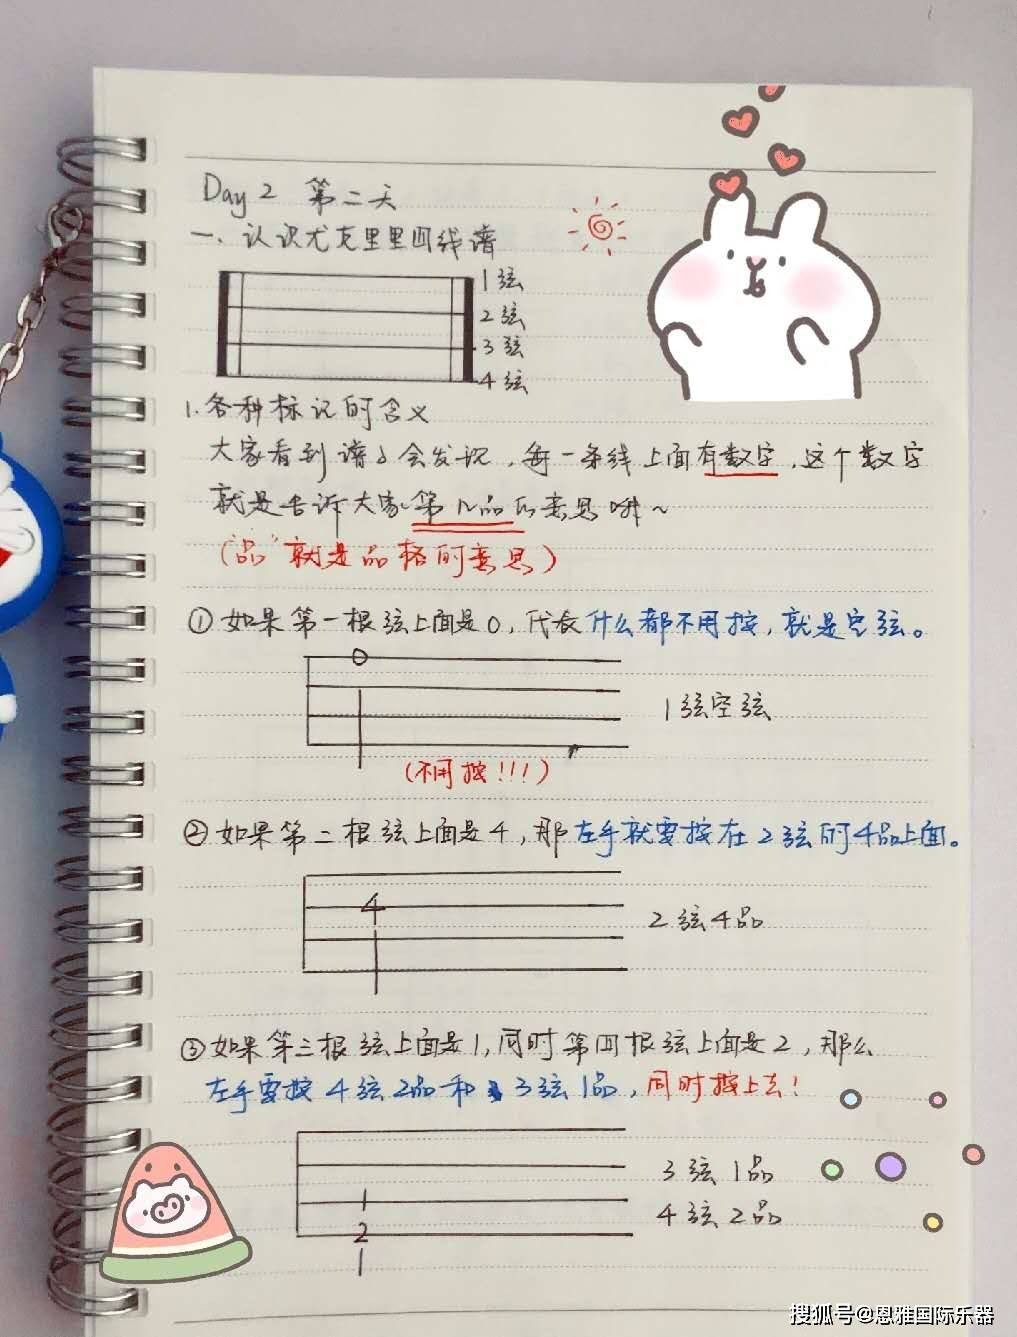 Day 2 第二天
一、认识尤克里里四线谱
1弦
2弦
3弦
4弦
1.各种标记的含义
大家看到谱子会发现，每一条线上面有数字，这个数字
就是告诉大家第几品的意思哦~
（“品”就是品格的意思）
①如果第一根弦上面是0，代表什么都不用按，就是空弦。
0
1弦空弦
（不用按!!!）
②如果第二根弦上面是4，那左手就要按在2弦的4品上面。
4
2弦4品
③如果第三根弦上面是1，同时第四根弦上面是2，那么
左手要按4弦2品和3弦1品，同时按上去！
3弦1品
1
4弦2品
2
搜狐号@恩雅国际乐器